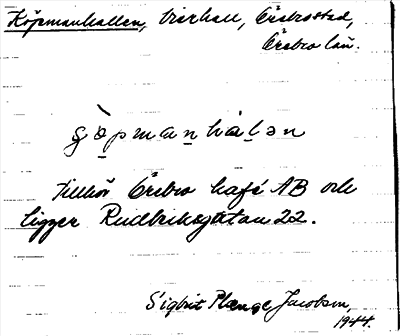 Köpmanhallen, Ölerhall, Örebro stad,
Örebro län.
çö̀pmanháḷən
Tillhör Örebro kafé AB och
ligger Rudbeksgatan 22.
Sigbrit Plænge Jacobson,
1944.